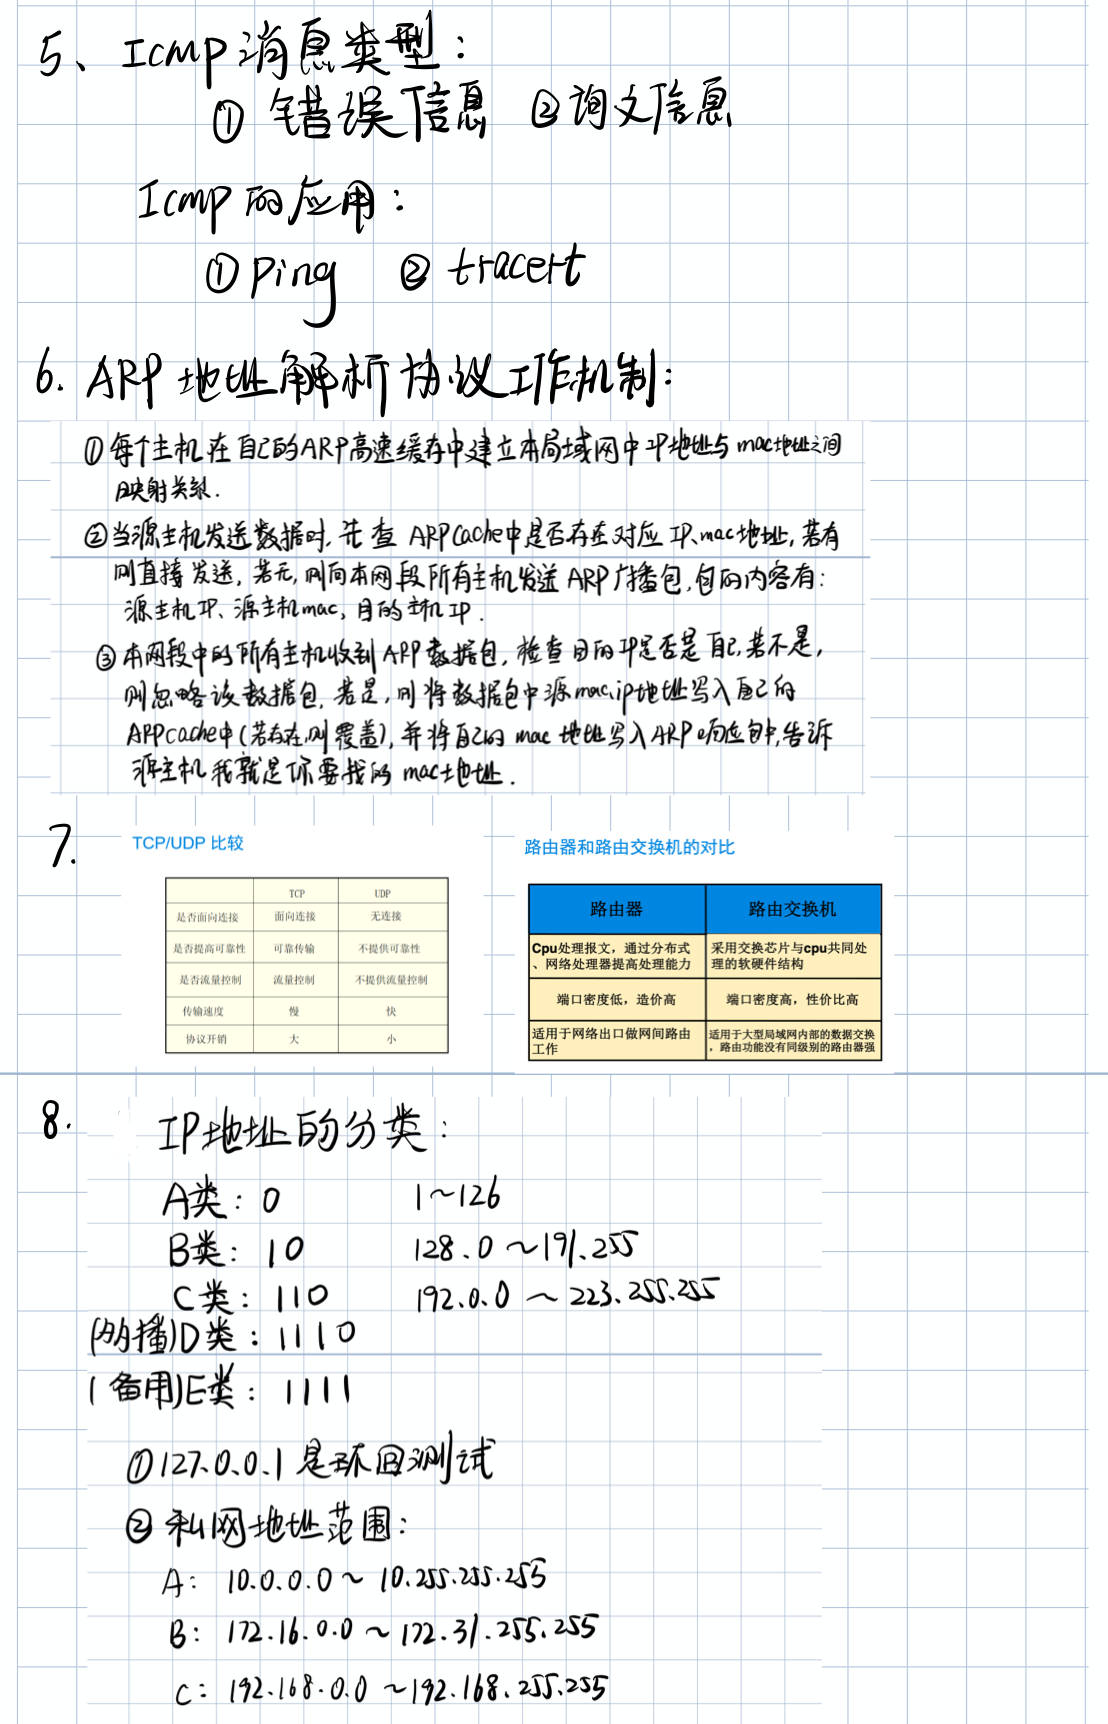 5、Icmp消息类型：
① 错误信息 ②询文信息
Icmp的应用：
①Ping ② tracert
6. ARP 地址解析协议工作机制：
①每个主机在自己的ARP高速缓存中建立本局域网中IP地址与mac地址之间
映射关系.
②当源主机发送数据时,先查 ARPCache中是否存在对应IP、mac地址,若有
则直接发送,若无,则向本网段所有主机发送ARP广播包,包的内容有：
源主机IP、源主机mac,目的主机IP.
③本网段中的所有主机收到ARP数据包,检查目的IP是否是自己,若不是,
则忽略该数据包,若是,则将数据包中源mac,ip地址写入自己的
ARPcache中(若存在,则覆盖),并将自己的mac地址写入ARP响应包中,告诉
源主机我就是你要找的mac地址.
7.
TCP/UDP 比较
TCP UDP
是否面向连接 面向连接 无连接
是否提高可靠性 可靠传输 不提供可靠性
是否流量控制 流量控制 不提供流量控制
传输速度 慢 快
协议开销 大 小
路由器和路由交换机的对比
路由器 路由交换机
Cpu处理报文，通过分布式
、网络处理器提高处理能力
采用交换芯片与cpu共同处
理的软硬件结构
端口密度低，造价高 端口密度高，性价比高
适用于网络出口做网间路由
工作
适用于大型局域网内部的数据交换
，路由功能没有同级别的路由器强
8.
IP地址的分类：
A类：0 1~126
B类：10 128.0~191.255
C类：110 192.0.0 ~ 223.255.255
(多播)D类：1110
(备用)E类：1111
①127.0.0.1是环回测试
②私网地址范围：
A: 10.0.0.0 ~ 10.255.255.255
B: 172.16.0.0 ~ 172.31.255.255
C: 192.168.0.0 ~192.168.255.255